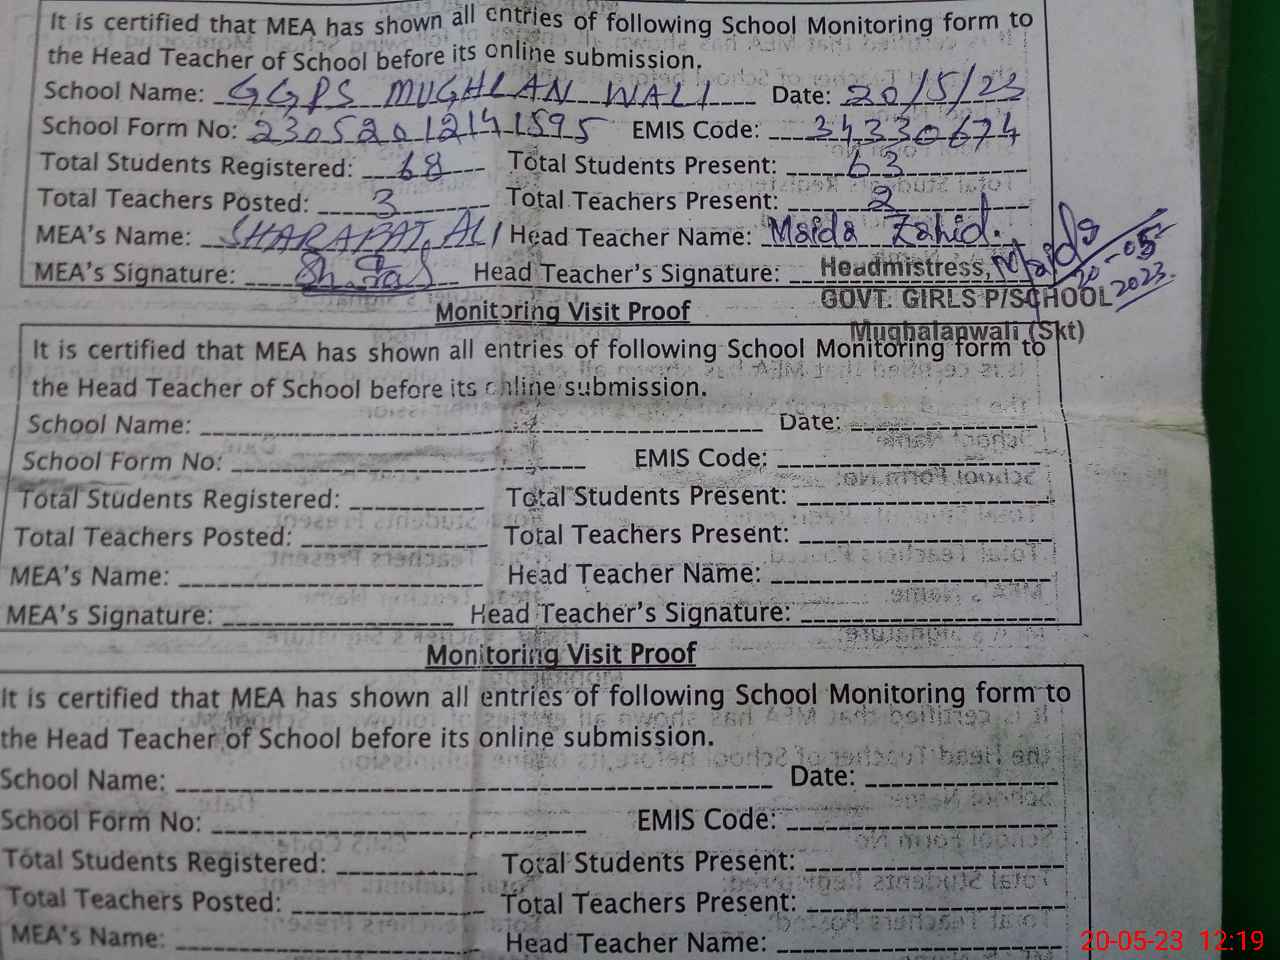 It is certified that MEA has shown all entries of following School Monitoring form to
the Head Teacher of School before its online submission.
School Name: GGPS MUGHLAN WALI Date: 20/5/23
School Form No: 23052012141595 EMIS Code: 34330674
Total Students Registered: 68 Total Students Present: 63
Total Teachers Posted: 3 Total Teachers Present: 2
MEA's Name: SHARAFAT ALI Head Teacher Name: Maida Zahid.
MEA's Signature: Head Teacher's Signature: Headmistress, Maida 20-05-2023
GOVT. GIRLS P/SCHOOL
Mughalanwali (Skt)
Monitoring Visit Proof
It is certified that MEA has shown all entries of following School Monitoring form to
the Head Teacher of School before its online submission.
School Name: Date:
School Form No: EMIS Code:
Total Students Registered: Total Students Present:
Total Teachers Posted: Total Teachers Present:
MEA's Name: Head Teacher Name:
MEA's Signature: Head Teacher's Signature:
Monitoring Visit Proof
It is certified that MEA has shown all entries of following School Monitoring form to
the Head Teacher of School before its online submission.
School Name: Date:
School Form No: EMIS Code:
Total Students Registered: Total Students Present:
Total Teachers Posted: Total Teachers Present:
MEA's Name: Head Teacher Name:
20-05-23 12:19